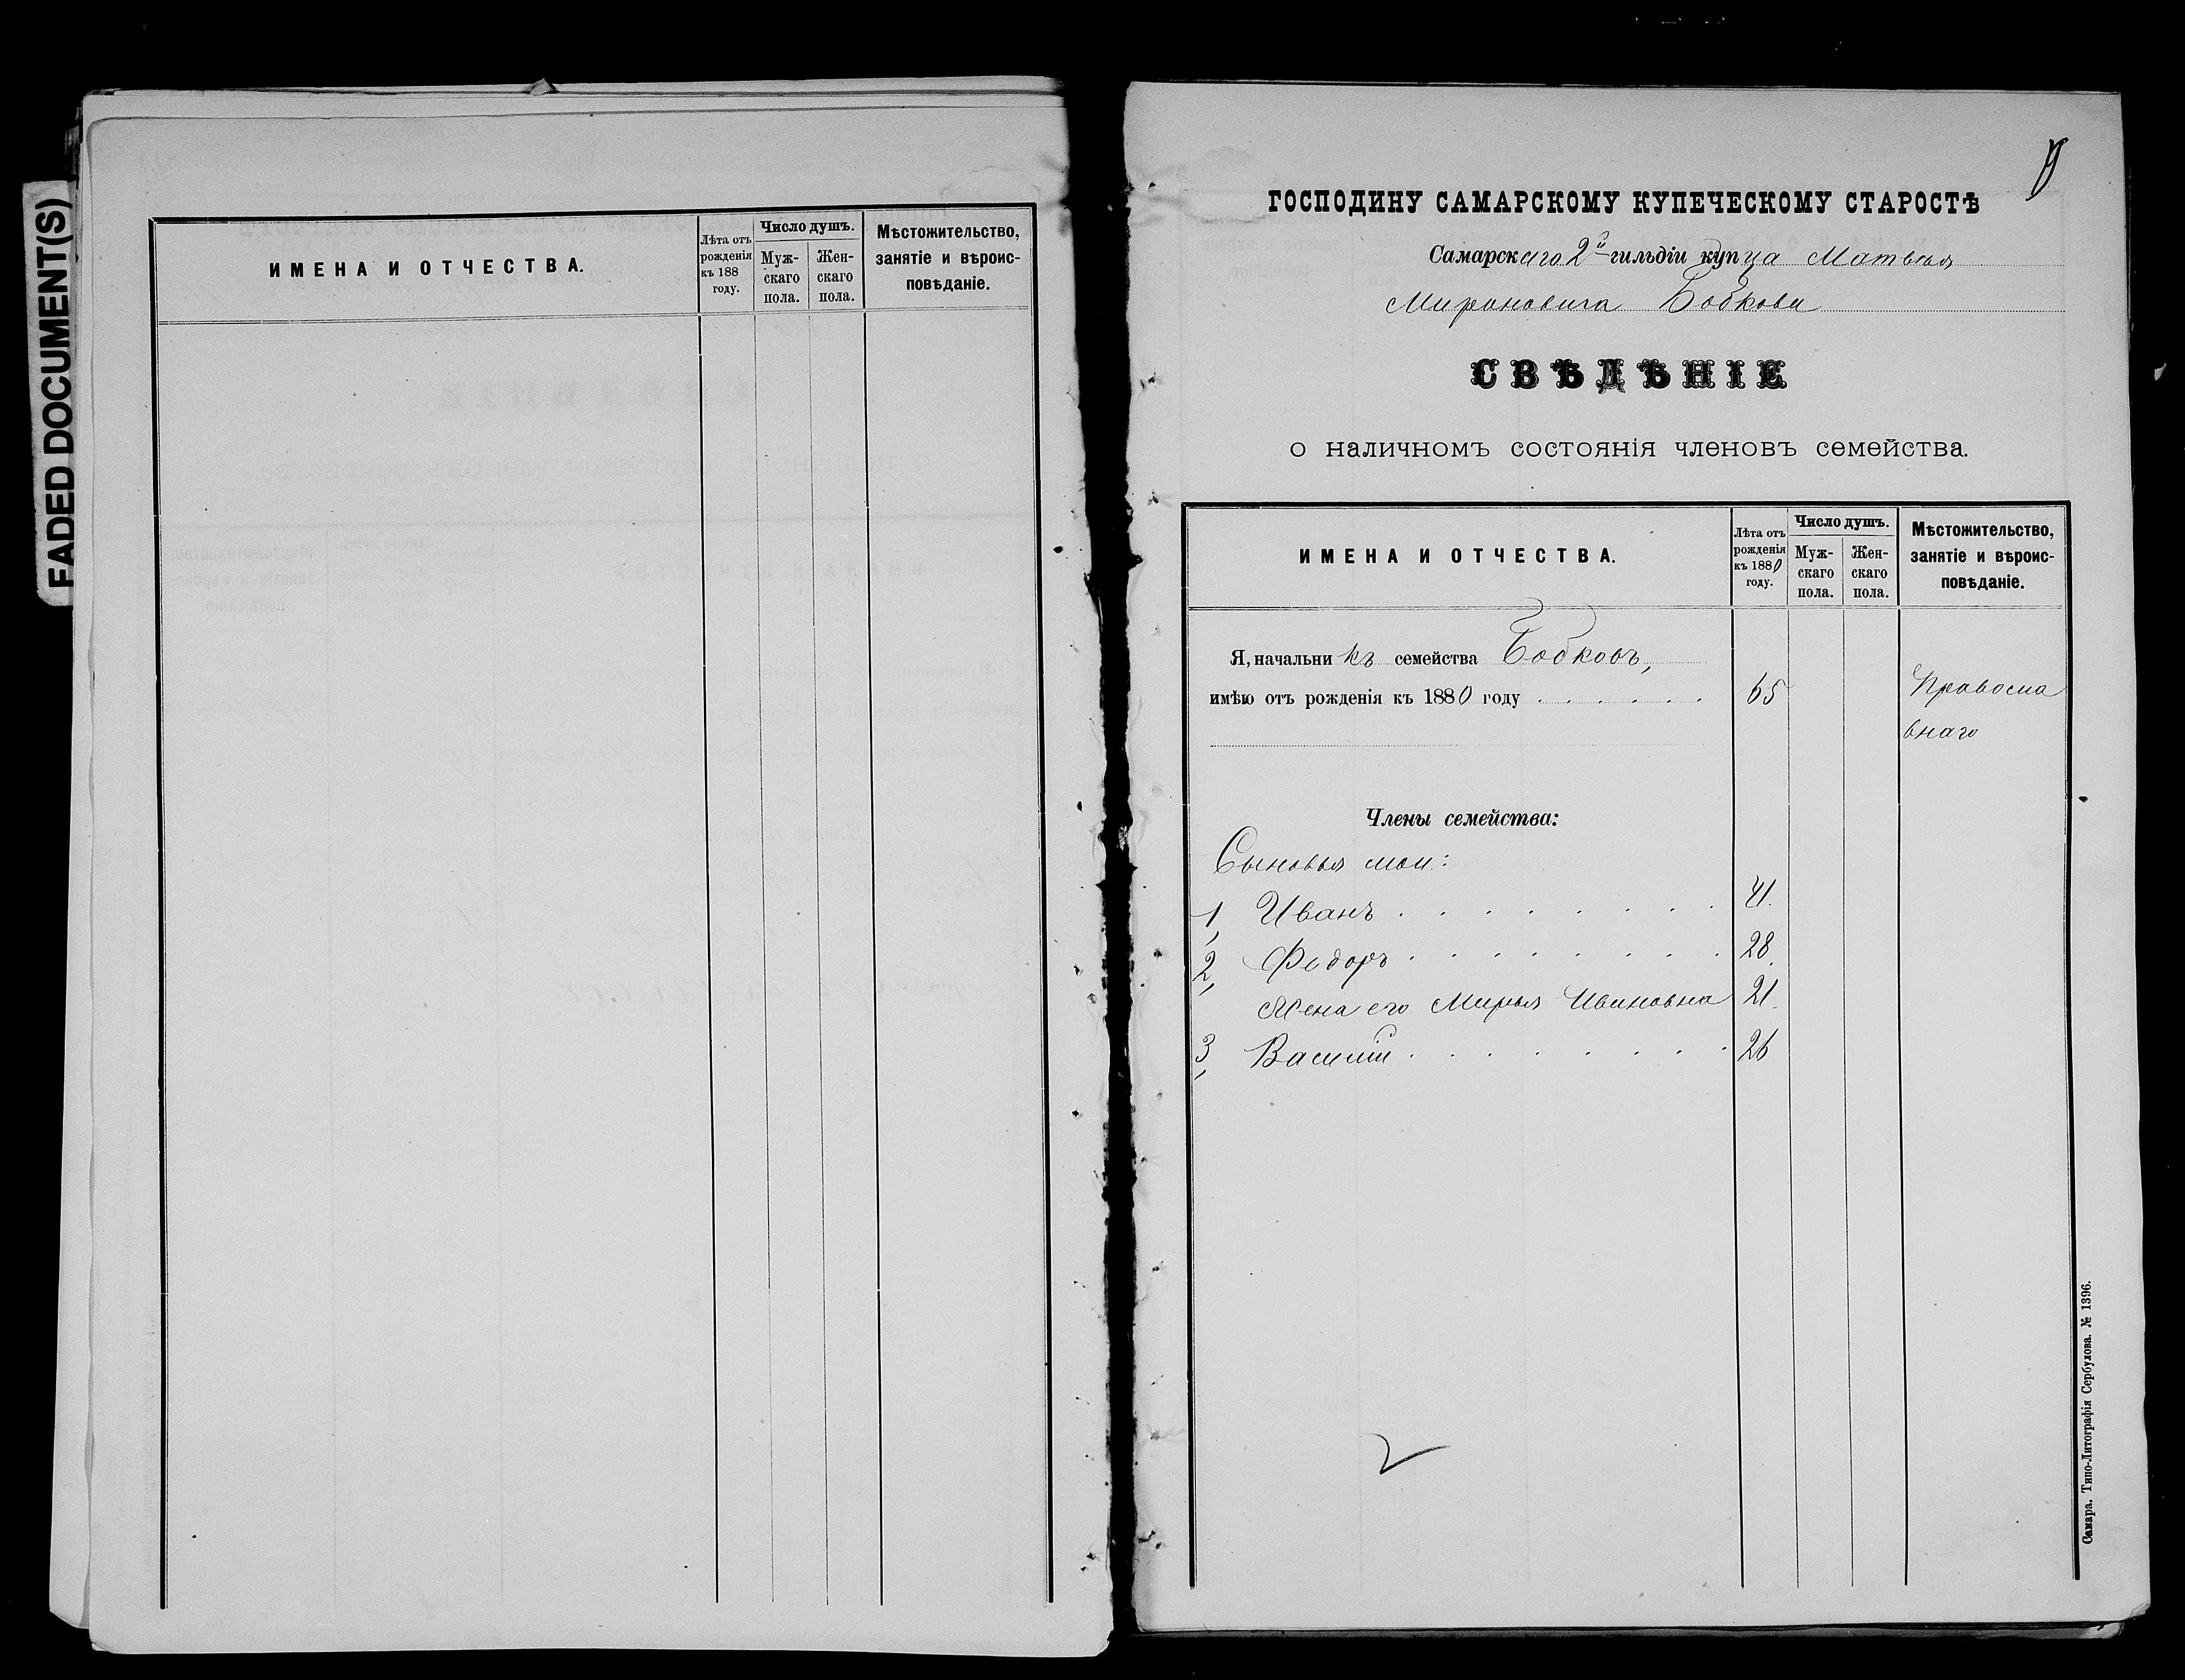 FADED DOCUMENT(S)
ИМЕНА И ОТЧЕСТВА.
Лѣта отъ
рожденія
къ 188
году.
Число душъ.
Муж-
скаго
пола.
Жен-
скаго
пола.
Мѣстожительство,
занятіе и вѣроис-
повѣданіе.
ГОСПОДИНУ САМАРСКОМУ КУПЕЧЕСКОМУ СТАРОСТѢ
Самарскаго 2й гильдіи купца Матвѣя
Мироновича Бобкова
СВѢДѢНІЕ
о наличномъ состоянія членовъ семейства.
ИМЕНА И ОТЧЕСТВА.
Лѣта отъ
рожденія
къ 1880
году.
Число душъ.
Муж-
скаго
пола.
Жен-
скаго
пола.
Мѣстожительство,
занятіе и вѣроис-
повѣданіе.
Я, начальникъ семейства Бобковъ,
имѣю отъ рожденія къ 1880 году . . . . . . 65 Правосла
внаго
Члены семейства:
Сыновья мои:
1, Иванъ . . . . . . . . 41.
2, Федоръ . . . . . . . . 28.
Жена его Марья Ивановна 21.
3, Василій . . . . . . . . 26
Самара. Типо-Литографія Сербулова. № 1396.